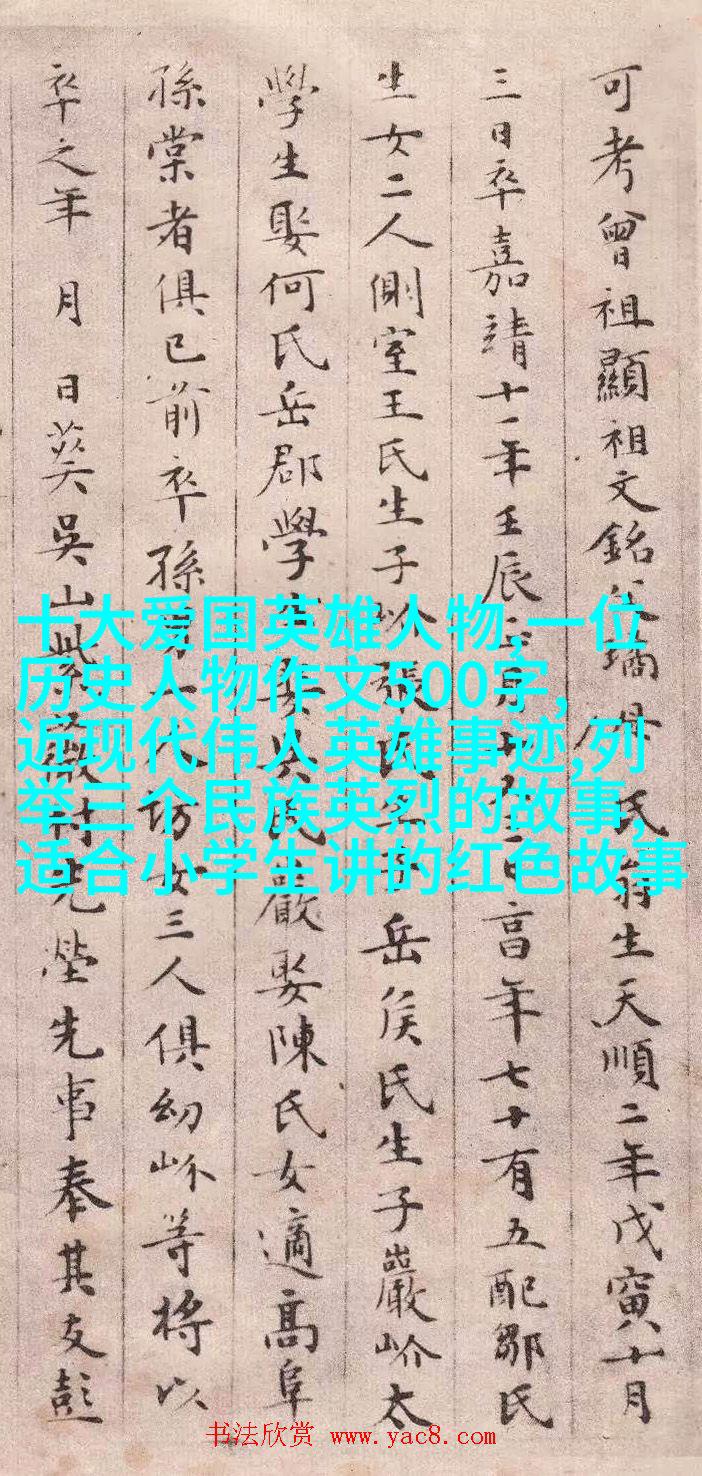 可考曾祖顯祖文銘父瑞母氏翁生天順二年戊寅十月
三日卒嘉靖十一年壬辰月十享年七十有五配鄒氏
生女二人側室王氏生子岎張氏生子岳侯氏生子嚴岎太
學生娶何氏岳郡學生娶吴氏嚴娶陳氏女適高阜
孫棠者俱已前卒孫男一人坊女三人俱幼岎等將以
卒之年 月 日葬吳山紫薇村先塋先事奉其友彭
十大爱国英雄人物,一位
历史人物作文500字,
近现代伟人英雄事迹,列
举三个民族英烈的故事,
适合小学生讲的红色故事
书法欣赏 www.yac8.com